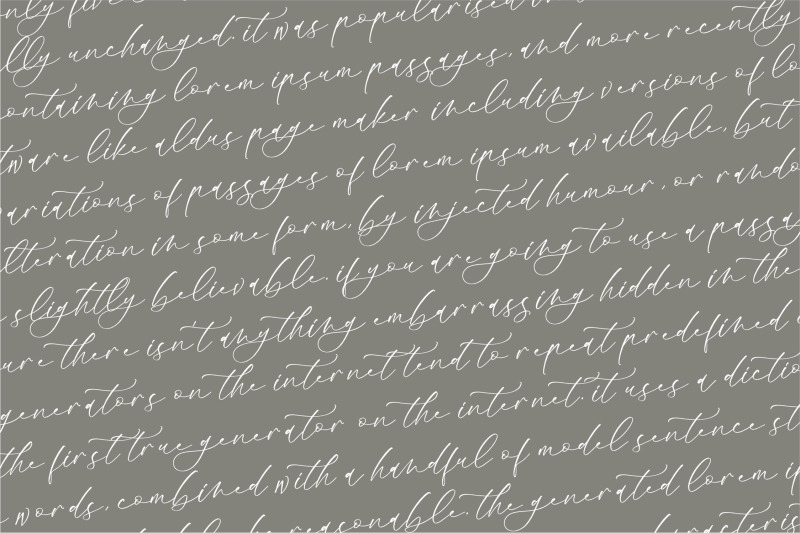 only five
lly unchanged. it was popularised
ontaining lorem ipsum passages, and more recently
tware like aldus page maker including versions of lo
ariations of passages of lorem ipsum available, but
lteration in some form, by injected humour, or rando
slightly believable. if you are going to use a passag
ure there isn't anything embarrassing hidden in the
generators on the internet tend to repeat predefined
the first true generator on the internet. it uses a dictio
words, combined with a handful of model sentence st
reasonable. the generated lorem ip
characteris